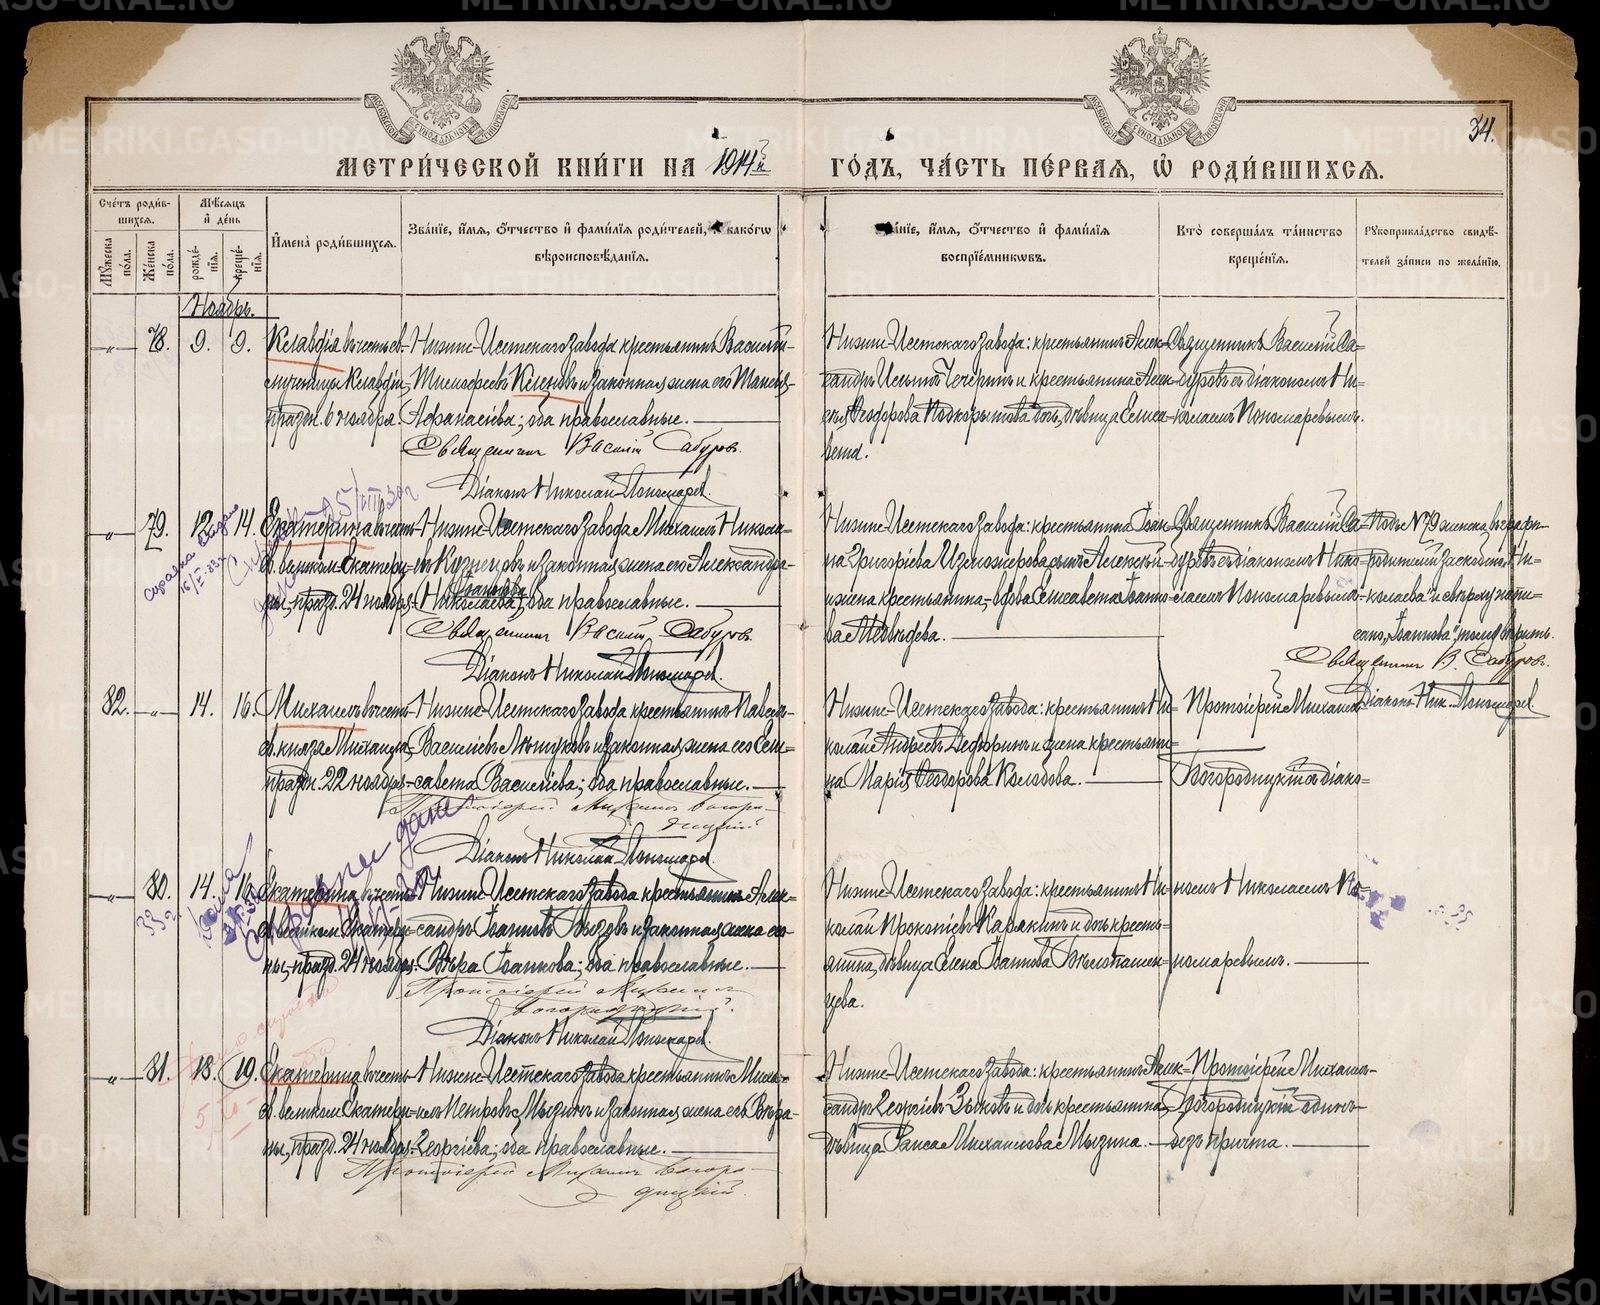 34.
МЕТРИ́ЧЕСКОЙ КНИ́ГИ НА 1914 й ГО́ДЪ, ЧА́СТЬ ПЕ́РВАЯ, Ѽ РОДИ́ВШИХСЯ.
Сче́тъ роди́вшихся.
Мужеска по́ла.
Же́нска по́ла.
Мѣ́сяцъ и҆ де́нь
рожде́нїя.
креще́нїя.
И҆мена̀ роди́вшихся.
Зва́нїе, и҆́мя, ѻ҆́тчество и҆ фами́лїя роди́телей, и҆ како́гѡ
вѣроисповѣ́данїя.
Зва́нїе, и҆́мя, ѻ҆́тчество и҆ фами́лїя
воспрїе́мникѡвъ.
Кто̀ соверша́лъ та́инство
креще́нїя.
Рукоприкла́дство свидѣ́-
телей за́писи по жела́нїю.
Ноябрь.
78. 9. 9.
Клавдія въ честь св.
мученицы Клавдіи,
праздн. 6 ноября.
Нижне-Исетскаго завода крестьянинъ Василій
Тимофеевъ и законная жена его Таисія
Афанасіева; оба православные.
Священникъ Василій Сабуровъ.
Діаконъ Николай Пономаревъ.
Нижне-Исетскаго завода: крестьянинъ Алек-
сандръ Ильинъ Чечеринъ и крестьянина Алек-
сѣя Ѳеодорова Подкорытова дочь, дѣвица Елиса-
вета.
Священникъ Василій Са-
буровъ съ діакономъ Ни-
колаемъ Пономаревымъ.
79. 12. 14.
справка выдана
Екатерина въ честь
св. великом. Екатери-
ны, празд. 24 ноября.
Нижне-Исетскаго завода Михаилъ Никола-
евъ Кузнецовъ и законная жена его Александра
Іоаннова
Николаева; оба православные.
Священникъ Василій Сабуровъ.
Діаконъ Николай Пономаревъ.
Нижне-Исетскаго завода: крестьянина Іоан-
на Григоріева Изможерова сынъ Алексѣй
и жена крестьянина, вдова Елисавета Іоанно-
ва Медвѣдева.
Священникъ Василій Са-
буровъ съ діакономъ Нико-
лаемъ Пономаревымъ.
Подъ № 79 записа въ графѣ
родителей заскоблено „Ни-
колаева" и сверху напи-
сано „Іоаннова", тому вѣрить.
Священникъ В. Сабуровъ.
Діаконъ Ник. Пономаревъ.
82. 14. 16.
Михаилъ въ честь
св. князя Михаила,
праздн. 22 ноября.
Нижне-Исетскаго завода крестьянинъ Павелъ
Василіевъ и законная жена его Ели-
савета Василіева; оба православные.
Протоіерей Михаилъ Богоро-
дицкій
Діаконъ Николай Пономаревъ.
Нижне-Исетскаго завода: крестьянинъ Ни-
колай Андреевъ и жена крестьяни-
на Марія Ѳеодорова Колобова.
Протоіерей Михаилъ
Богородицкій съ діако-
80. 14. 16.
Екатерина въ честь
св. великом. Екатери-
ны, празд. 24 ноября.
Нижне-Исетскаго завода крестьянинъ Алек-
сандръ Іоанновъ и законная жена его
Вѣра Іоаннова; оба православные.
Протоіерей Михаилъ
Богородицкій.
Діаконъ Николай Пономаревъ.
Нижне-Исетскаго завода: крестьянинъ Ни-
колай Прокопіевъ Карякинъ и дочь кресть-
янина, дѣвица Елена Іоаннова Бѣлопашен-
цева.
номъ Николаемъ По-
номаревымъ.
81. 18. 19.
Екатерина въ честь
св. великом. Екатери-
ны, празд. 24 ноября.
Нижне-Исетскаго завода крестьянинъ Миха-
илъ Петровъ Мызинъ и законная жена его Вѣра
Георгіева; оба православные.
Протоіерей Михаилъ Богоро-
дицкій.
Нижне-Исетскаго завода: крестьянинъ Алек-
сандръ Георгіевъ Зыковъ и дочь крестьянина,
дѣвица Раиса Михаилова Мызина.
Протоіерей Михаилъ
Богородицкій одинъ
безъ причта.
METRIKI.GASO-URAL.RU